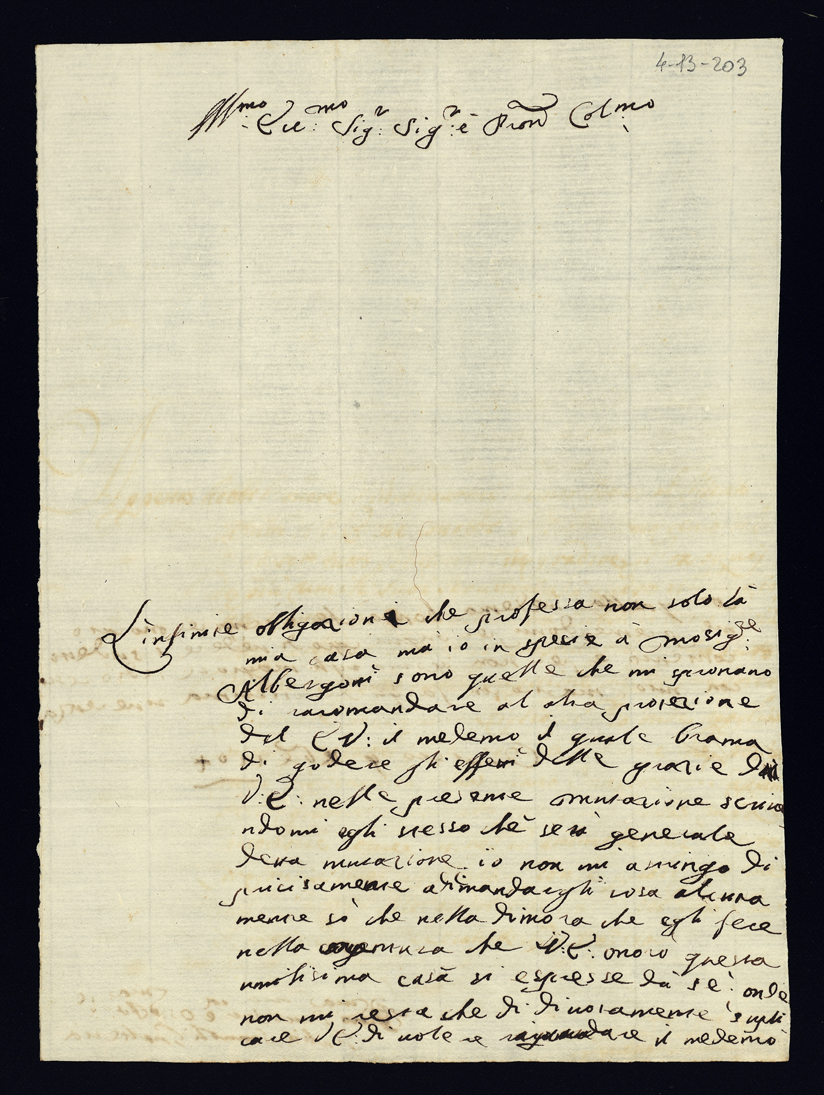 4-13-203
Ill:mo Ecc:mo Sig:r Sig:r è Pron Col:mo
L'infinite obligazioni che professa non solo là
mia casa mà io in spezie à Monsig:re
Albergoni sono quelle che mi spronano
di racomandare al alta protezione
del E V: il medemo il quale brama
di godere gli effetti delle grazie di
V:E: nella presente mutazione scrive
ndomi egli stesso chè serà generale
detta mutazione. io non mi atingo di
precisamente adimandargli cosa alcuna
mentre sò che nella dimora che egli fece
nella che V:E: onorò questa
umilisima casa si espresse da sè: onde
non mi resta che di divotamente supli
care V:E: di volere il medemo